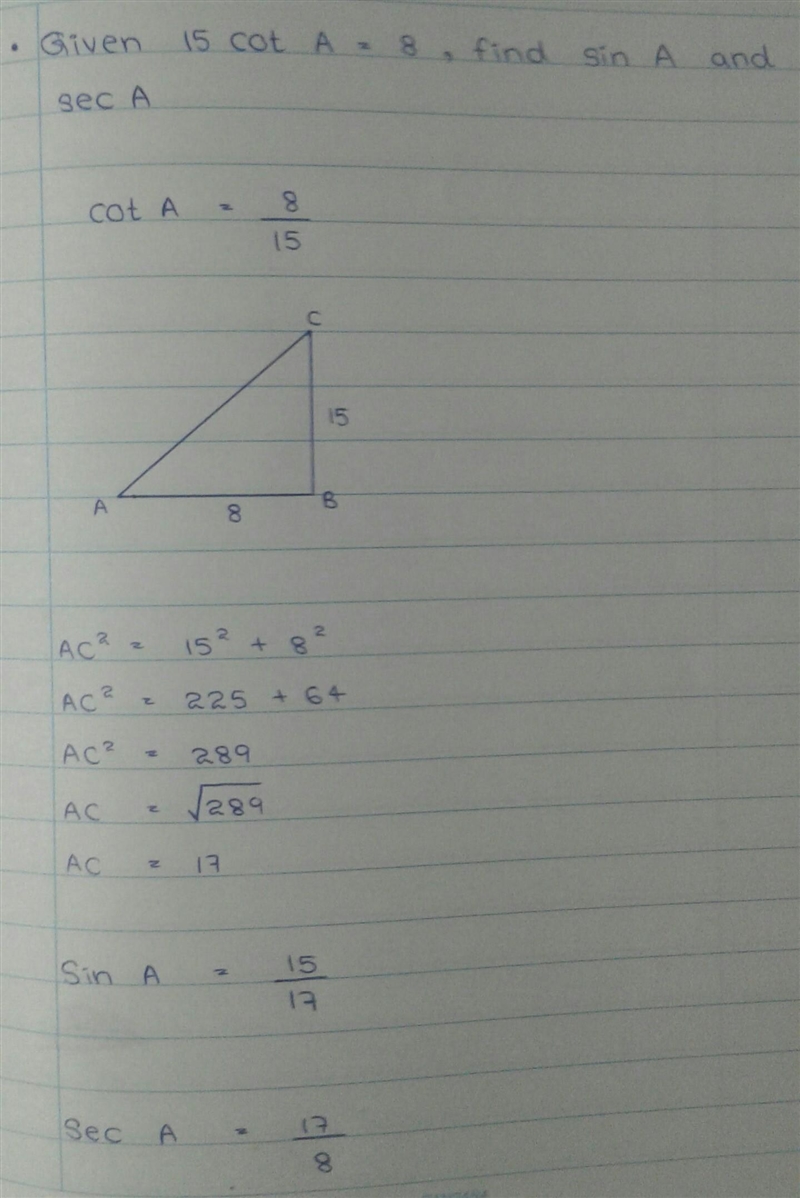 . Given 15 cot A = 8, find sin A and
sec A
cot A = 8/15
C
15
A
8
B
AC² = 15² + 8²
AC² = 225 + 64
AC² = 289
AC = √289
AC = 17
Sin A = 15/17
Sec A = 17/8